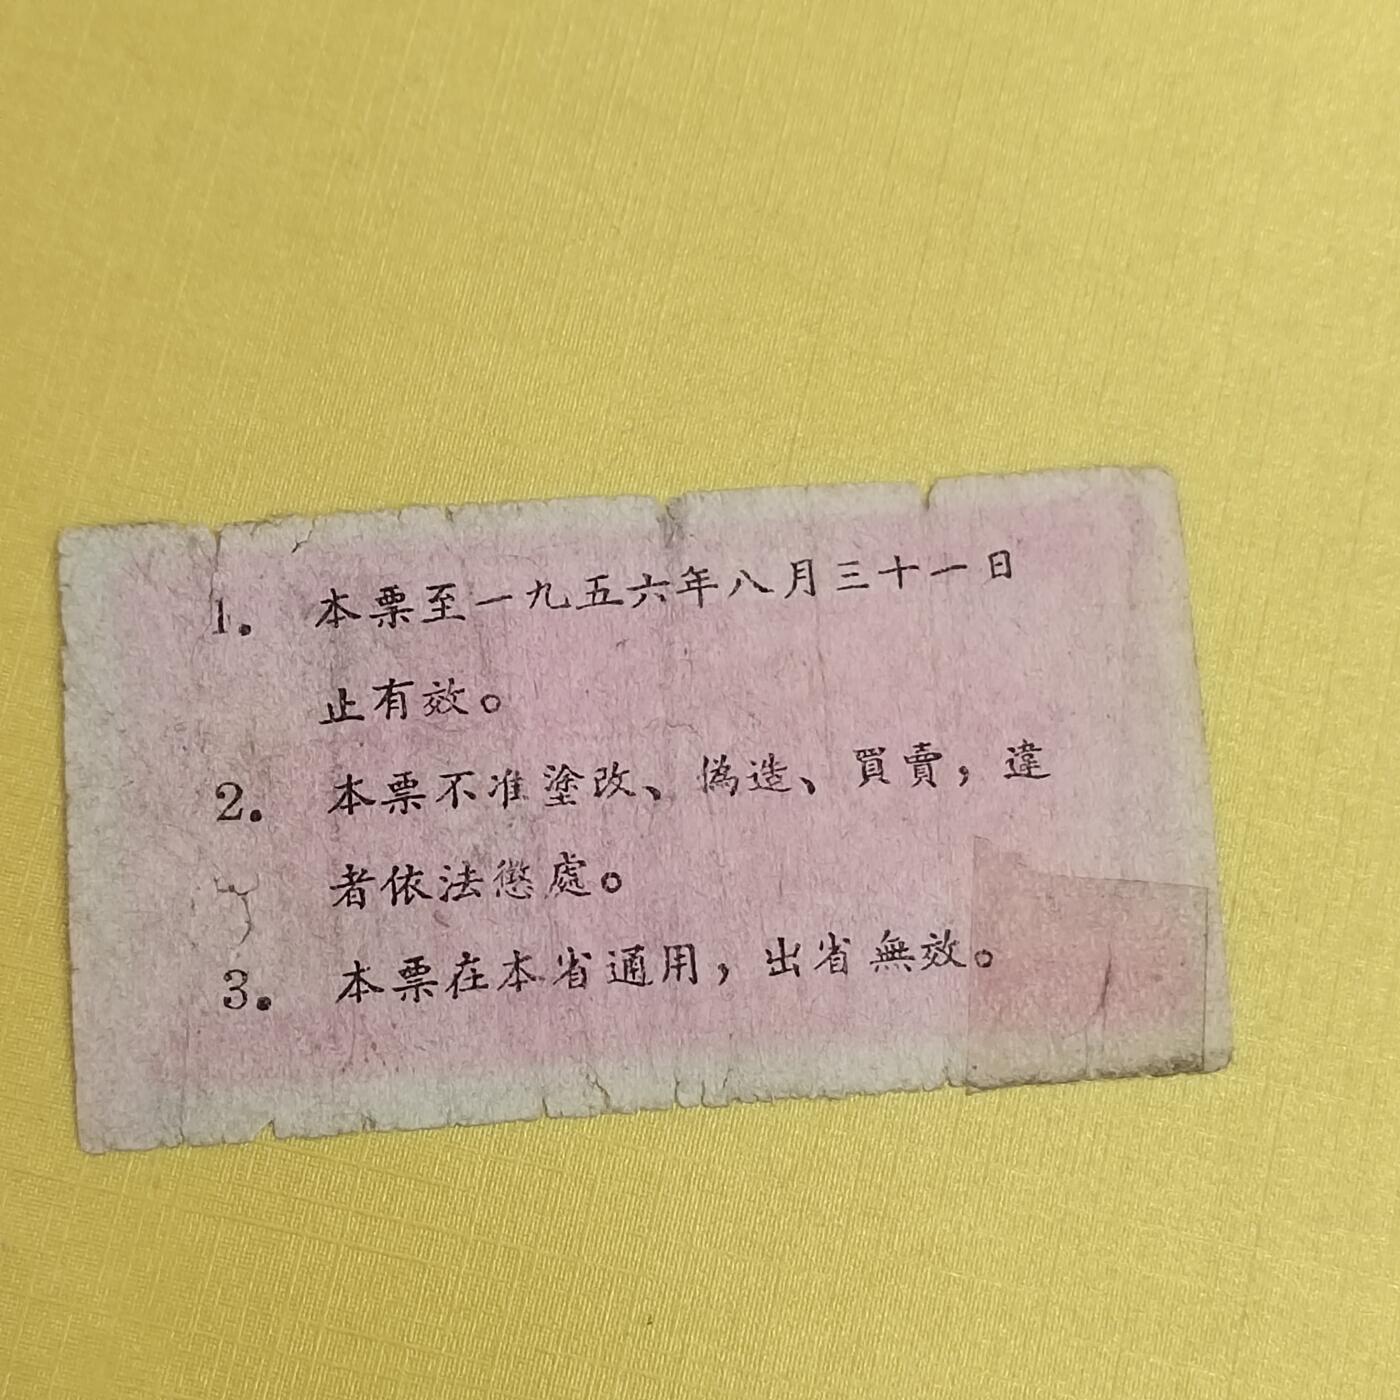 1. 本票至一九五六年八月三十一日
止有效。
2. 本票不准塗改、偽造、買賣，違
者依法懲處。
3. 本票在本省通用，出省無效。